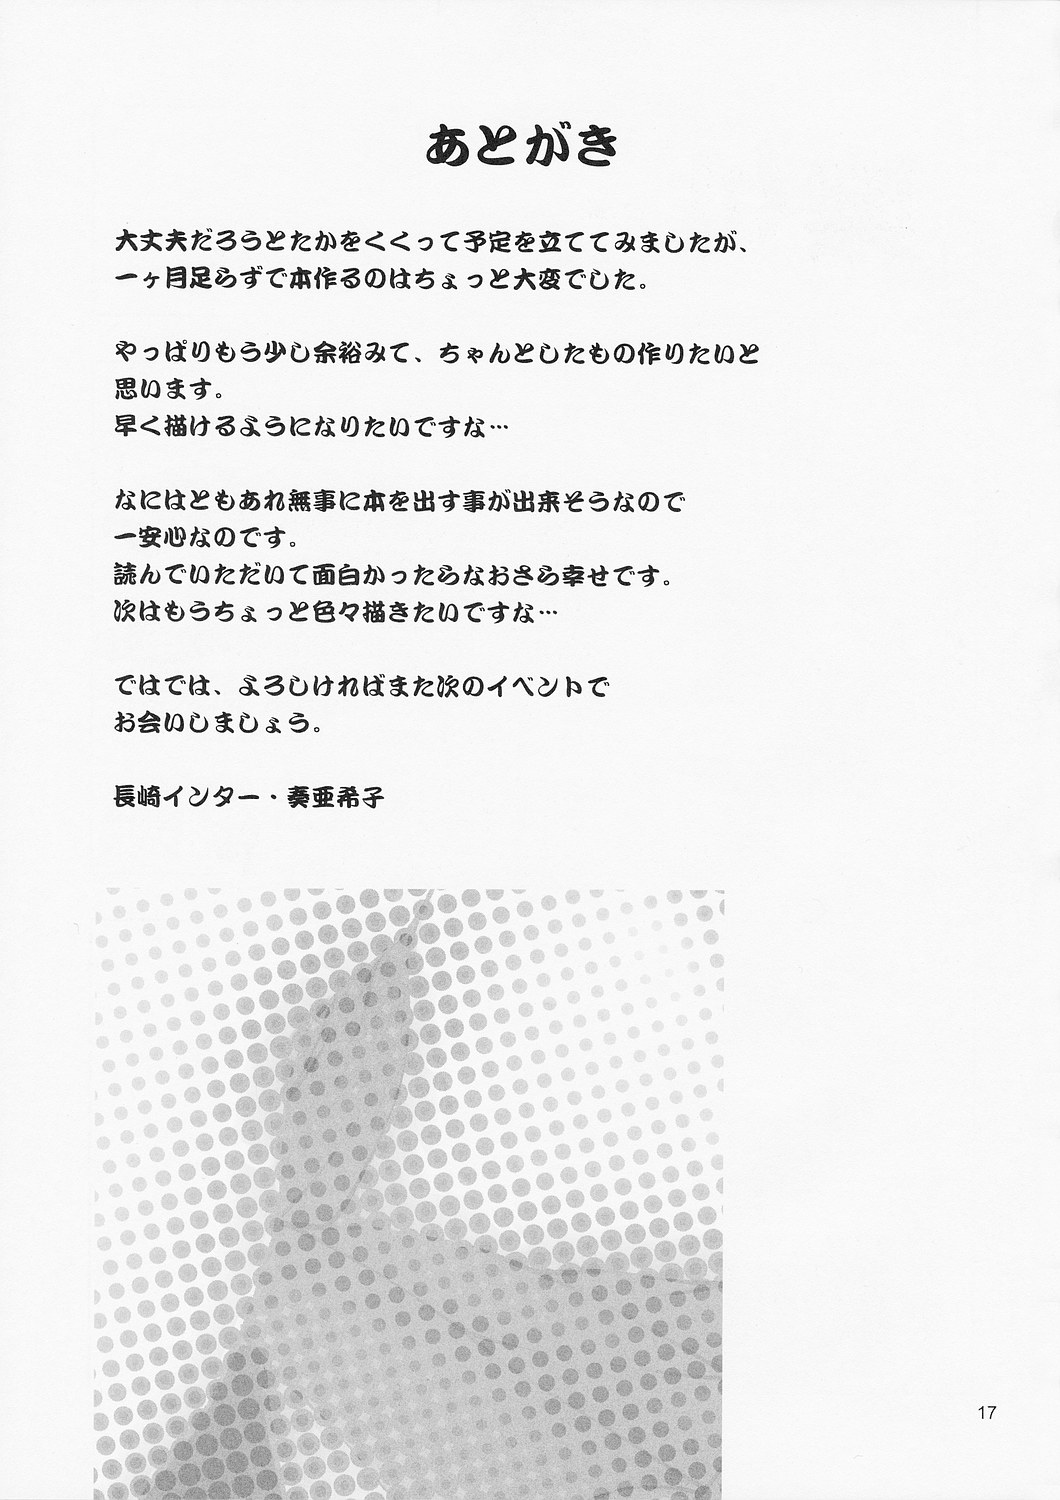 あとがき
大丈夫だろうとたかをくくって予定を立ててみましたが、
一ヶ月足らずで本作るのはちょっと大変でした。
やっぱりもう少し余裕みて、ちゃんとしたもの作りたいと
思います。
早く描けるようになりたいですな…
なにはともあれ無事に本を出す事が出来そうなので
一安心なのです。
読んでいただいて面白かったらなおさら幸せです。
次はもうちょっと色々描きたいですな…
ではでは、よろしければまた次のイベントで
お会いしましょう。
長崎インター・奏亜希子
17